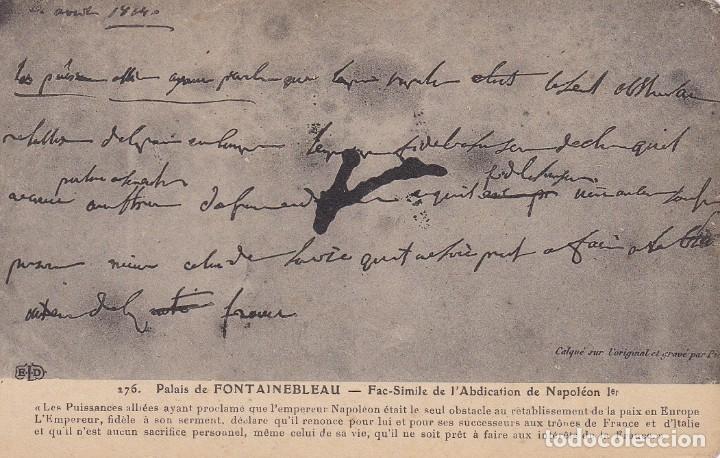 avril 1814
les puissances alliées ayant proclamé que l'empereur était le seul obstacle au
rétablissement de la paix en Europe l'empereur fidele a son serment declare qu'il
renonce aux trones de france et qu'il
personnel meme celui de la vie qu'il ne soit pret a faire a
de la france
Calqué sur l'original et gravé par
E.L.D
276. Palais de FONTAINEBLEAU — Fac-Simile de l'Abdication de Napoléon Ier
« Les Puissances alliées ayant proclamé que l'empereur Napoléon était le seul obstacle au rétablissement de la paix en Europe
L'Empereur, fidèle à son serment, déclare qu'il renonce pour lui et pour ses successeurs aux trônes de France et d'Italie
et qu'il n'est aucun sacrifice personnel, même celui de sa vie, qu'il ne soit prêt à faire aux intérêts de la France »
todocoleccion.net